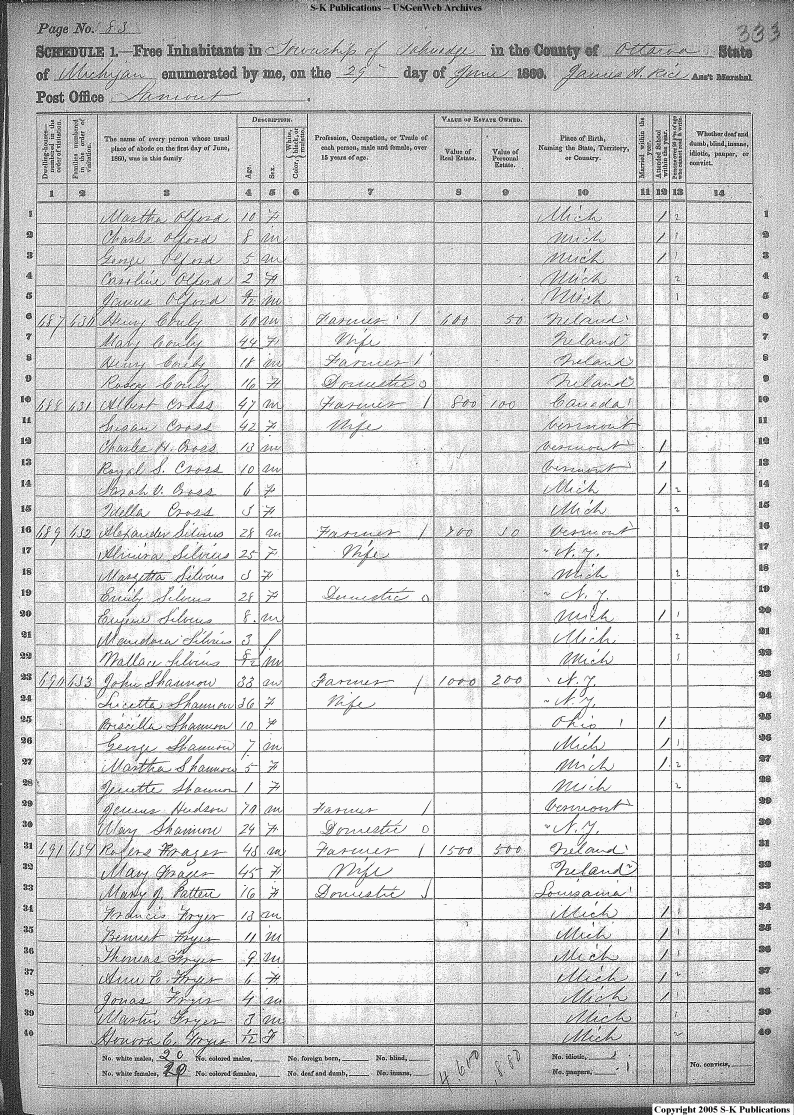 S-K Publications -- USGenWeb Archives
Page No. 83
333
SCHEDULE 1.—Free Inhabitants in Township of in the County of Ottawa State
of Michigan enumerated by me, on the 29 day of June 1860. James A. Rice Ass't Marshal.
Post Office
Dwelling-houses—numbered in the order of visitation.
Families numbered in the order of visitation.
The name of every person whose usual place of abode on the first day of June, 1860, was in this family
DESCRIPTION.
Age.
Sex.
Color, { White, black, or mulatto.
Profession, Occupation, or Trade of each person, male and female, over 15 years of age.
VALUE OF ESTATE OWNED.
Value of Real Estate.
Value of Personal Estate.
Place of Birth, Naming the State, Territory, or Country.
Married within the year.
Attended School within the year.
Persons over 20 y'rs of age who cannot read & write.
Whether deaf and dumb, blind, insane, idiotic, pauper, or convict.
1 2 3 4 5 6 7 8 9 10 11 12 13 14
1 Martha Olford 10 F Mich / 2 1
2 Charles Olford 8 m Mich / 1 2
3 George Olford 5 m Mich / 1 3
4 Caroline Olford 2 F Mich 2 4
5 James Olford m Mich 1 5
6 687 630 Henry Conly 60 m Farmer 1 600 50 Ireland 6
7 Mary Conly 44 F Wife Ireland 7
8 Henry Conly 18 m Farmer 1 Ireland 8
9 Rosey Conly 16 F Domestic 0 Ireland 9
10 688 631 Albert Cross 47 m Farmer 1 800 100 Canada 10
11 Susan Cross 42 F Wife Vermont 11
12 Charles H. Cross 13 m Vermont / 12
13 Royal S. Cross 10 m Vermont / 13
14 Sarah V. Cross 6 F Mich / 2 14
15 Idella Cross 3 F Mich 2 15
16 689 632 Alexander Silvius 28 m Farmer 1 700 50 Vermont 16
17 Almira Silvius 25 F Wife " N.Y. 17
18 Margetta Silvius 3 F Mich 2 18
19 Emily Silvius 28 F Domestic 0 " N.Y. 19
20 Eugene Silvius 8 m Mich / 1 20
21 Mandora Silvius 3 f Mich 2 21
22 Wallace Silvius 8/12 m Mich 1 22
23 690 633 John Shannon 33 m Farmer 1 1000 200 " N.Y. 23
24 Lucetta Shannon 36 F Wife " N.Y. 24
25 Priscilla Shannon 10 F Ohio / 25
26 George Shannon 7 m Mich / 1 26
27 Martha Shannon 5 F Mich / 2 27
28 Jenette Shannon 1 F Mich 2 28
29 Hudson 70 m Farmer 1 Vermont 29
30 Mary Shannon 29 F Domestic 0 " N.Y. 30
31 691 634 Rogers Frazer 48 m Farmer 1 1500 500 Ireland 31
32 Mary Frazer 45 F Wife Ireland 32
33 Mary J. Patten 16 F Domestic Louisiana 33
34 Francis Fryer 13 m Mich / 1 34
35 Bennet Fryer 11 m Mich / 1 35
36 Thomas Fryer 9 m Mich / 1 36
37 Ann E. Fryer 6 F Mich / 2 37
38 Jonas Fryer 4 m Mich / 1 38
39 Martin Fryer 3 m Mich 1 39
40 Honora C. Fryer 1/12 F Mich 2 40
No. white males, 20 No. colored males, No. foreign born, No. blind, 4,600 ,880 No. idiotic, No. convicts,
No. white females, No. colored females, No. deaf and dumb, No. insane, No. paupers,
Copyright 2005 S-K Publications